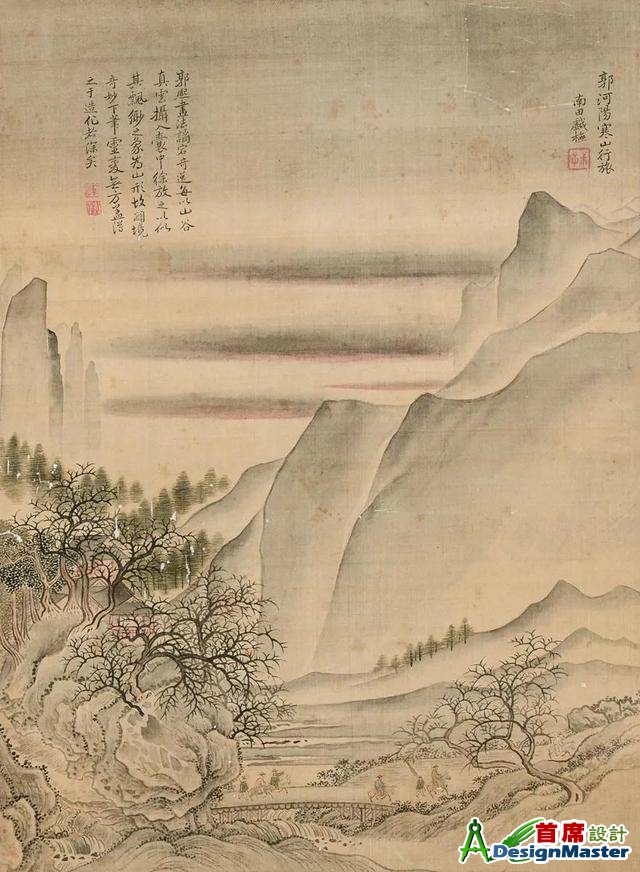 郭河陽寒山行旅
南田戲橅
郭熙畫法譎宕奇逸每以山谷
真雲攝入囊中徐放之以似
其飄緲之象為山形故闢境
奇妙下筆靈變無方蓋得
之于造化者深矣
首席設計
DesignMaster